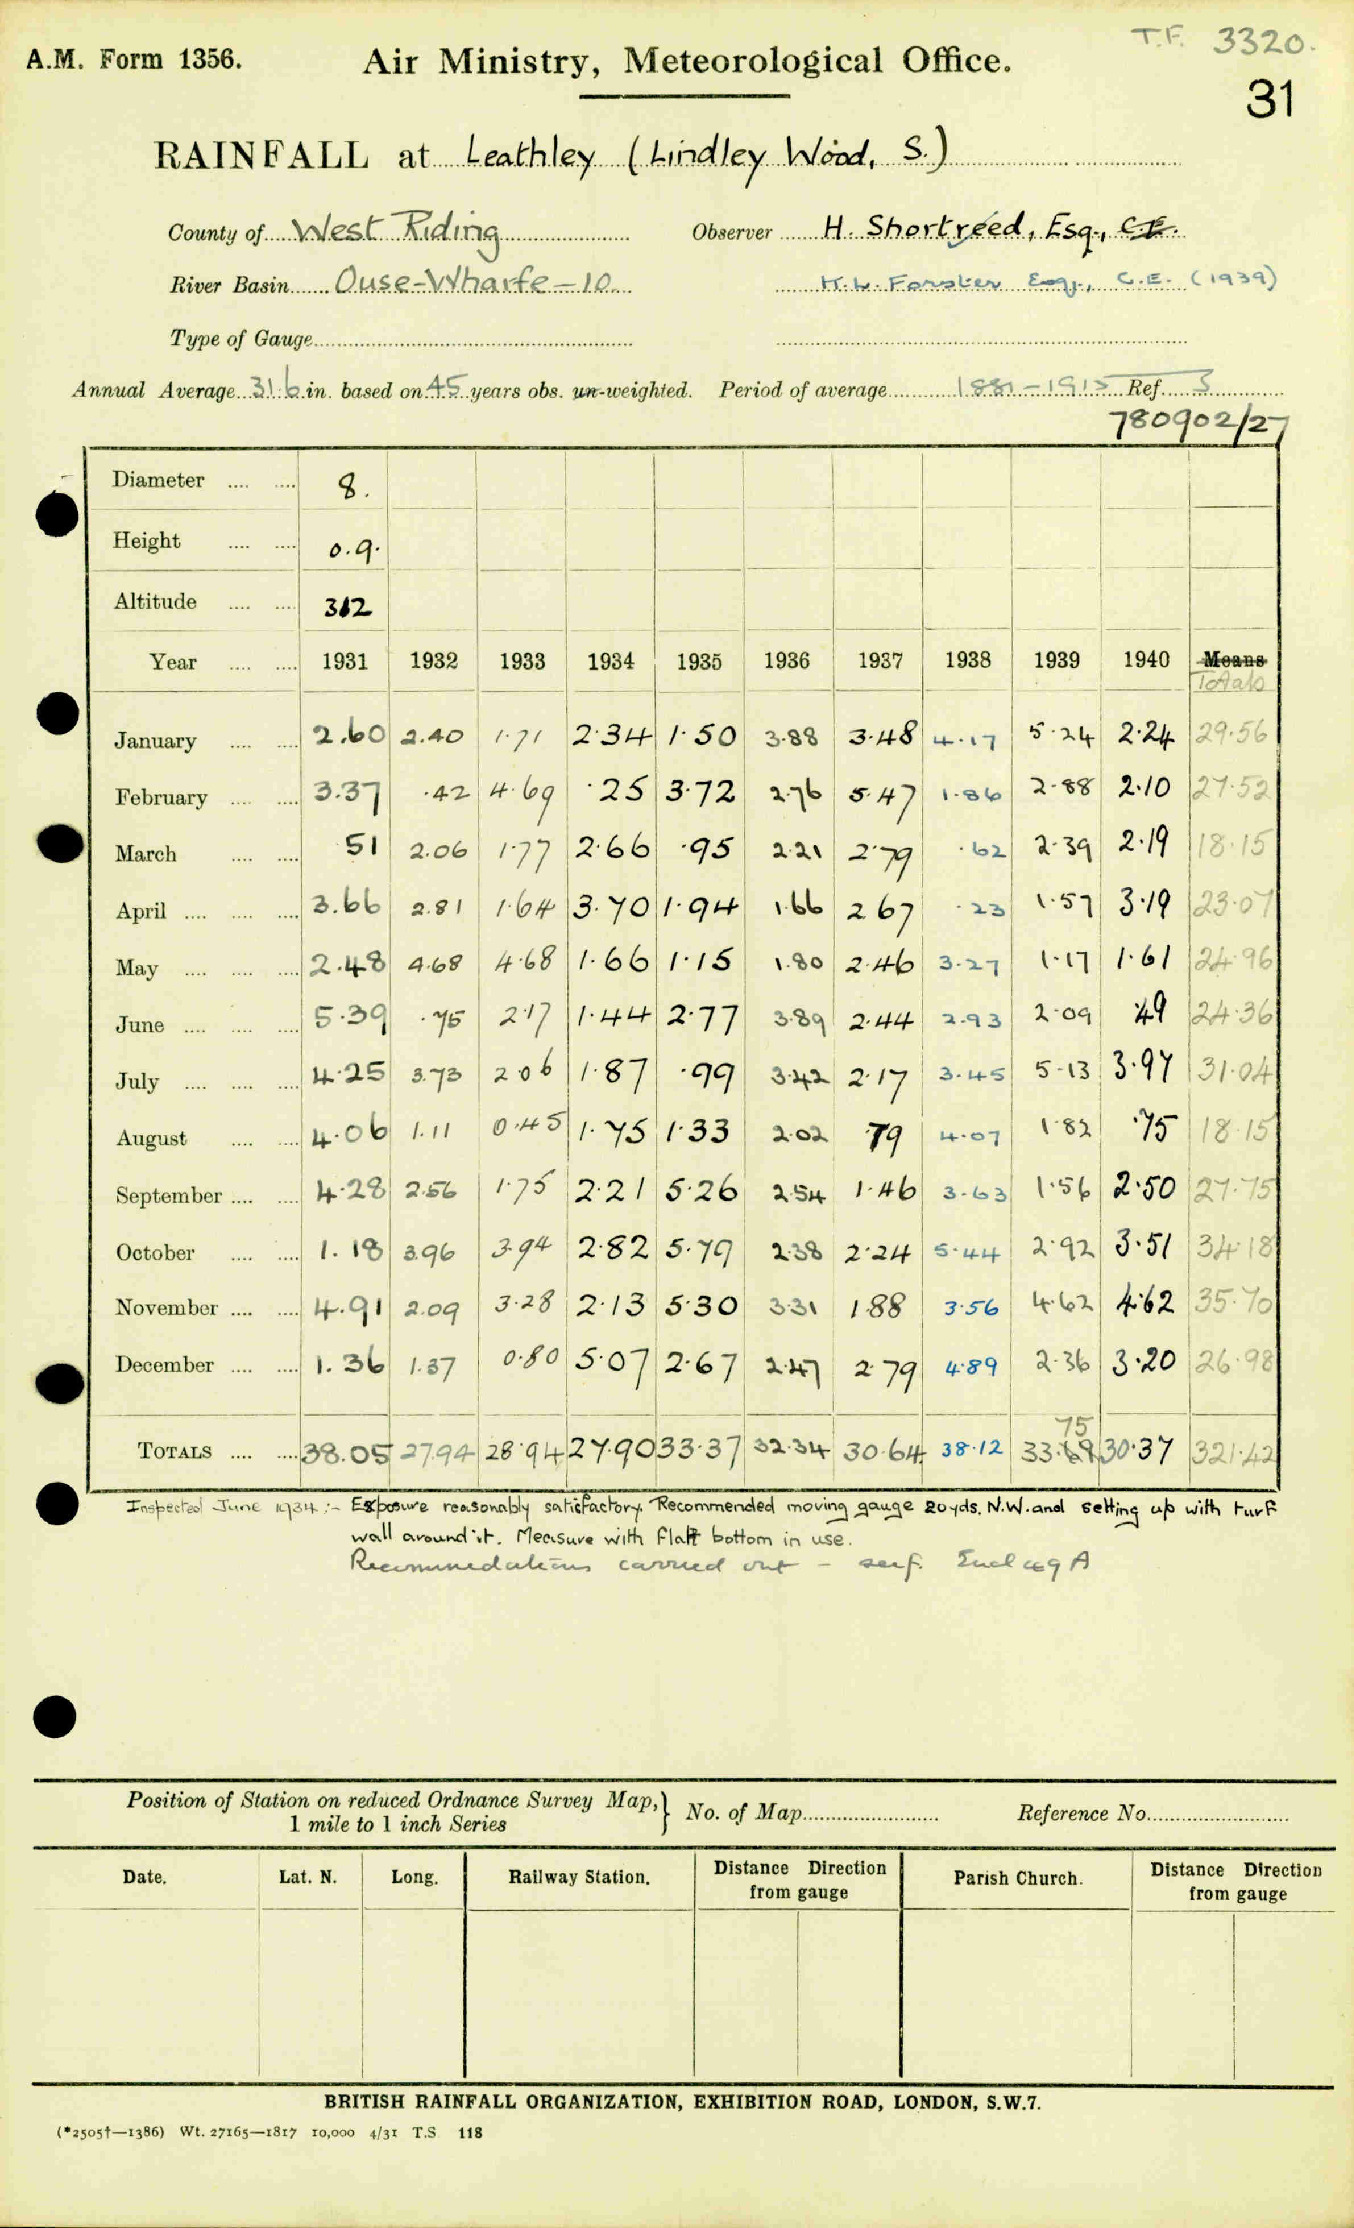 T.F. 3320.
A.M. Form 1356. Air Ministry, Meteorological Office.
31
RAINFALL at Leathley (Lindley Wood, S.)
County of West Riding Observer H. Shortreed, Esq., C.E.
River Basin Ouse-Wharfe-10 K.W. Forster Esq., C.E. (1939)
Type of Gauge
Annual Average 31.6 in. based on 45 years obs. un-weighted. Period of average 1881-1915 Ref. 3
780902/27
Diameter 8.
Height 0.9.
Altitude 312
Year 1931 1932 1933 1934 1935 1936 1937 1938 1939 1940 Means
Totals
January 2.60 2.40 1.71 2.34 1.50 3.88 3.48 4.17 5.24 2.24 29.56
February 3.37 .42 4.69 .25 3.72 2.76 5.47 1.86 2.88 2.10 27.52
March 51 2.06 1.77 2.66 .95 2.21 2.79 .62 2.39 2.19 18.15
April 3.66 2.81 1.64 3.70 1.94 1.66 2.67 .23 1.57 3.19 23.07
May 2.48 4.68 4.68 1.66 1.15 1.80 2.46 3.27 1.17 1.61 24.96
June 5.39 .75 2.17 1.44 2.77 3.89 2.44 2.93 2.09 .49 24.36
July 4.25 3.73 2.06 1.87 .99 3.42 2.17 3.45 5.13 3.97 31.04
August 4.06 1.11 0.45 1.75 1.33 2.02 .79 4.07 1.82 .75 18.15
September 4.28 2.56 1.75 2.21 5.26 2.54 1.46 3.63 1.56 2.50 27.75
October 1.18 3.96 3.94 2.82 5.79 2.38 2.24 5.44 2.92 3.51 34.18
November 4.91 2.09 3.28 2.13 5.30 3.31 1.88 3.56 4.62 4.62 35.70
December 1.36 1.37 0.80 5.07 2.67 2.47 2.79 4.89 2.36 3.20 26.98
75
TOTALS 38.05 27.94 28.94 27.90 33.37 32.34 30.64 38.12 33.69 30.37 321.42
Inspected June 1934:- Exposure reasonably satisfactory. Recommended moving gauge 20yds. N.W. and setting up with turf
wall around it. Measure with flat bottom in use.
Recommendations carried out –
Position of Station on reduced Ordnance Survey Map, } No. of Map Reference No.
1 mile to 1 inch Series
Date. Lat. N. Long. Railway Station. Distance Direction from gauge Parish Church. Distance Direction from gauge
BRITISH RAINFALL ORGANIZATION, EXHIBITION ROAD, LONDON, S.W.7.
(*2505†—1386) Wt. 27165—1817 10,000 4/31 T.S 118